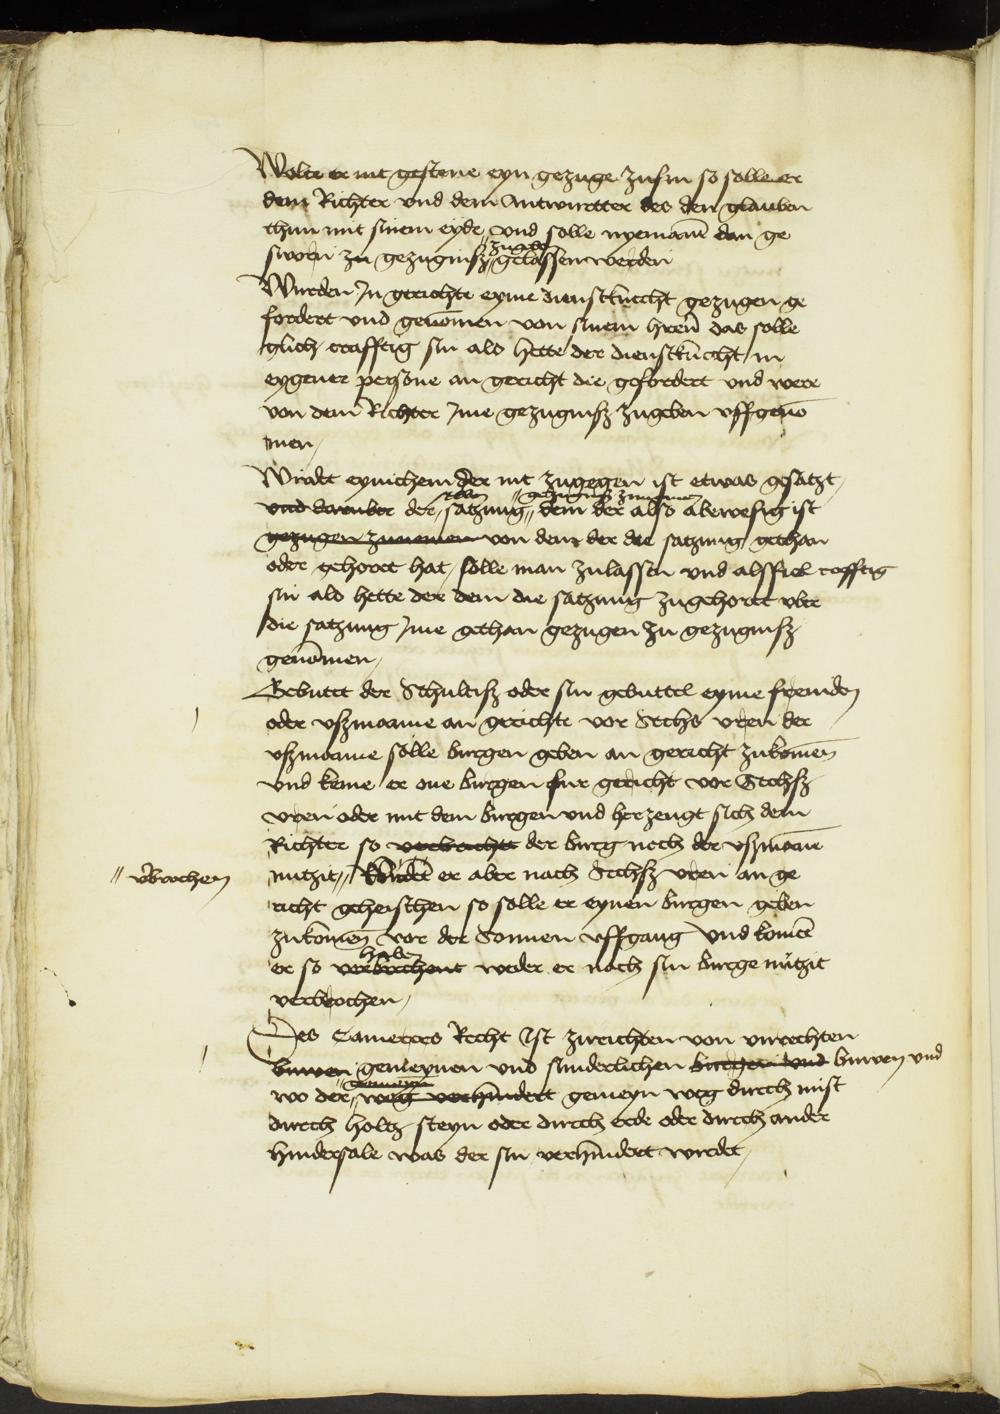 Wolte er nit gesterie eyn gezuge zusin so solle er
dem Richter vnd dem Antwurtter des den glauben
thun mit sinem eyde, vnd solle nyemann dan ge
sworn zu gezugnisz zugelassen werden
Wurden Jn gerichte eyme dienstknecht gezugen ge
fordert vnd genomen von sinem hern das solle
glich crefftig sin als hette der dienstknecht in
eygener persone an gericht die gefordert vnd were
von dem Richter Jme gezugnisz zugeben vffgeno
men,
Wirdet eynichem der nit zugegen ist etwas gesatzt,
vnd daruber der selben satzung gezugnisz zunemen dem der also abewesig ist
gezugen zunemen von dem der die satzung gethan
oder gehoret hat, solle man zulassen vnd alsfiel crefftig
sin als hette der dem die satzung zugehoret vber
die satzung Jme gethan gezugen zu gezugnisz
genommen,
Gebutet der Schultisz oder sin gebuttel eyme fremden
oder vszmanne an gerichte vor Sechs vren der
vszmanne solle burgen geben an gericht zukomen
vnd keme er one burgen fur gericht vor Sechsz
vren oder mit dem burgen vnd herzeugt sich dem
Richter so verbrichet der burg noch der vszmann
nutzit, Wurdet er aber nach Sechsz vren an ge
vbrochen
richt geheischen so solle er eynen burgen geben
zukomen vor der Sonnen vffgang vnd komet
er so verbrochent haben weder er noch sin burge nutzit
verbrochen,
Des Camerers Recht Ist zurichten von vnrechten
buwen gemeynen vnd sunderlichen burgen vnd buwen vnd
wo der gemeyn weg verhindert gemeyn weg durch mist
durch holtz steyn oder durch erde oder durch ander
hindersale was der sin verhindert wirdet,